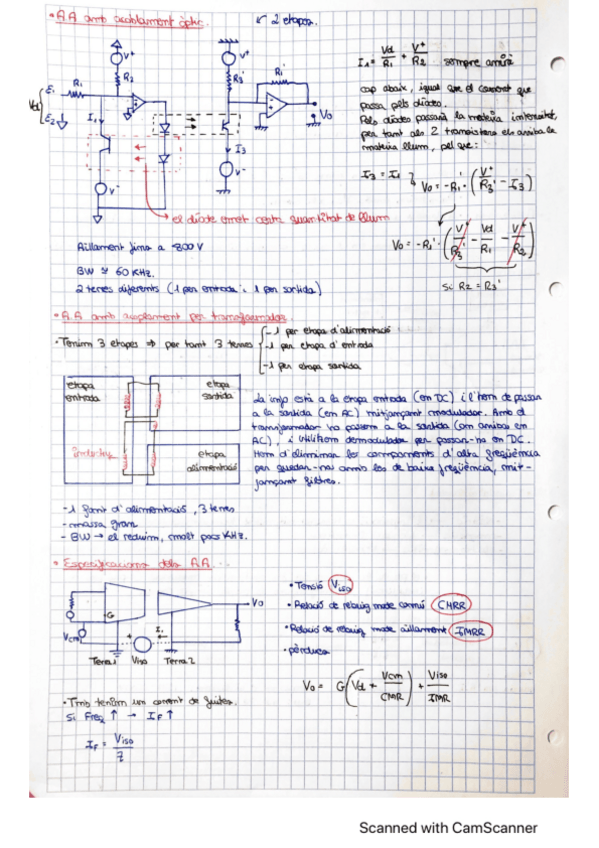 · A.A amb acoblament òptic.
↙ 2 etapes.
V+
R2
E1
R1
Vd
E2
I1
V-
V+
R3'
R1'
Vo
I3
V-
I1 = Vd/R1 + V+/R2 sempre anirà
cap abaix, igual que el corrent que
passa pels díodes.
Pels díodes passarà la mateixa intensitat,
per tant als 2 transistors els arriba la
mateixa llum, pel que:
I3 = I1
Vo = -R1' · (V+/R3' - I3)
Vo = -R1' · (V+/R3' - Vd/R1 - V+/R2)
Si R2 = R3'
el díode emet certa quantitat de llum
Aïllament fins a ~800 V
BW ≈ 60 KHz.
2 terres diferents (1 per entrada i 1 per sortida)
· A.A amb acoplament per transformador.
· Tenim 3 etapes ⇒ per tant 3 terres
-1 per etapa d'alimentació
-1 per etapa d'entrada
-1 per etapa sortida
etapa entrada
etapa sortida
etapa alimentació
La info està a la etapa entrada (en DC) i l'hem de passar
a la sortida (en AC) mitjançant modulador. Amb el
transformador ho passem a la sortida (on arriba en
AC), i utilitzem demodulador per passar-ho en DC.
Hem d'eliminar les components d'alta freqüència
per quedar-nos amb les de baixa freqüència, mit-
jançant filtres.
-1 font d'alimentació, 3 terres
-massa gran
- BW → el reduïm, molt pocs KHz.
· Especificacions dels AA.
G
Vo
Vcm
Terra 1
Viso
Terra 2
· Tensió Viso
· Relació de rebuig mode comú CMRR
· Relació de rebuig mode aïllament IMRR
· pèrdues
Vo = G(Vd + Vcm/CMR) + Viso/IMR
· Tmb tenim un corrent de fuites.
Si Freq ↑ → IF ↑
IF = Viso/Z
Scanned with CamScanner